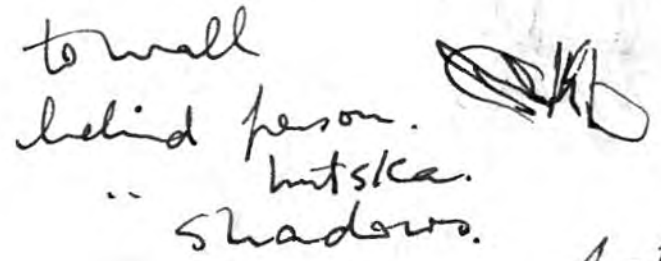 to wall
behind person.
" hutska.
shadows.